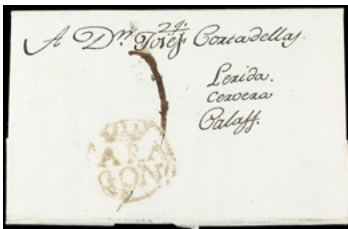 29.
A Dⁿ. Josef Cortadellas.
Lerida.
Cervera
Calaff.
ARA
GON